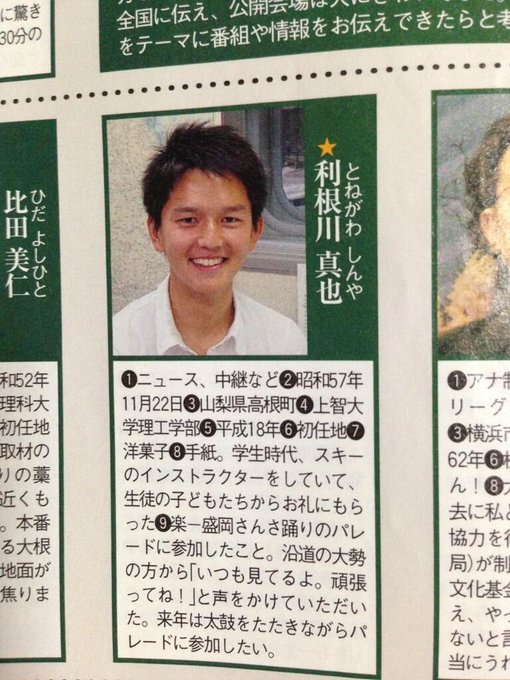 に驚き
30分の
全国に伝え、公開会場は
をテーマに番組や情報をお伝えできたらと考
ひだ よしひと
比田 美仁
和52年
理科大
初任地
取材の
りの藁
近くも
。本番
る大根
地面が
焦りま
とねがわ しんや
★利根川 真也
❶ニュース、中継など❷昭和57年
11月22日❸山梨県高根町❹上智大
学理工学部❺平成18年❻初任地❼
洋菓子❽手紙。学生時代、スキー
のインストラクターをしていて、
生徒の子どもたちからお礼にもら
った❾楽―盛岡さんさ踊りのパレ
ードに参加したこと。沿道の大勢
の方から「いつも見てるよ。頑張
ってね!」と声をかけていただい
た。来年は太鼓をたたきながらパ
レードに参加したい。
❶アナ制
リーグ
❸横浜市
62年❻
ん!❽
去に私と
協力を得
局)が制
文化基金
え、やっ
ないと言
当にうれ